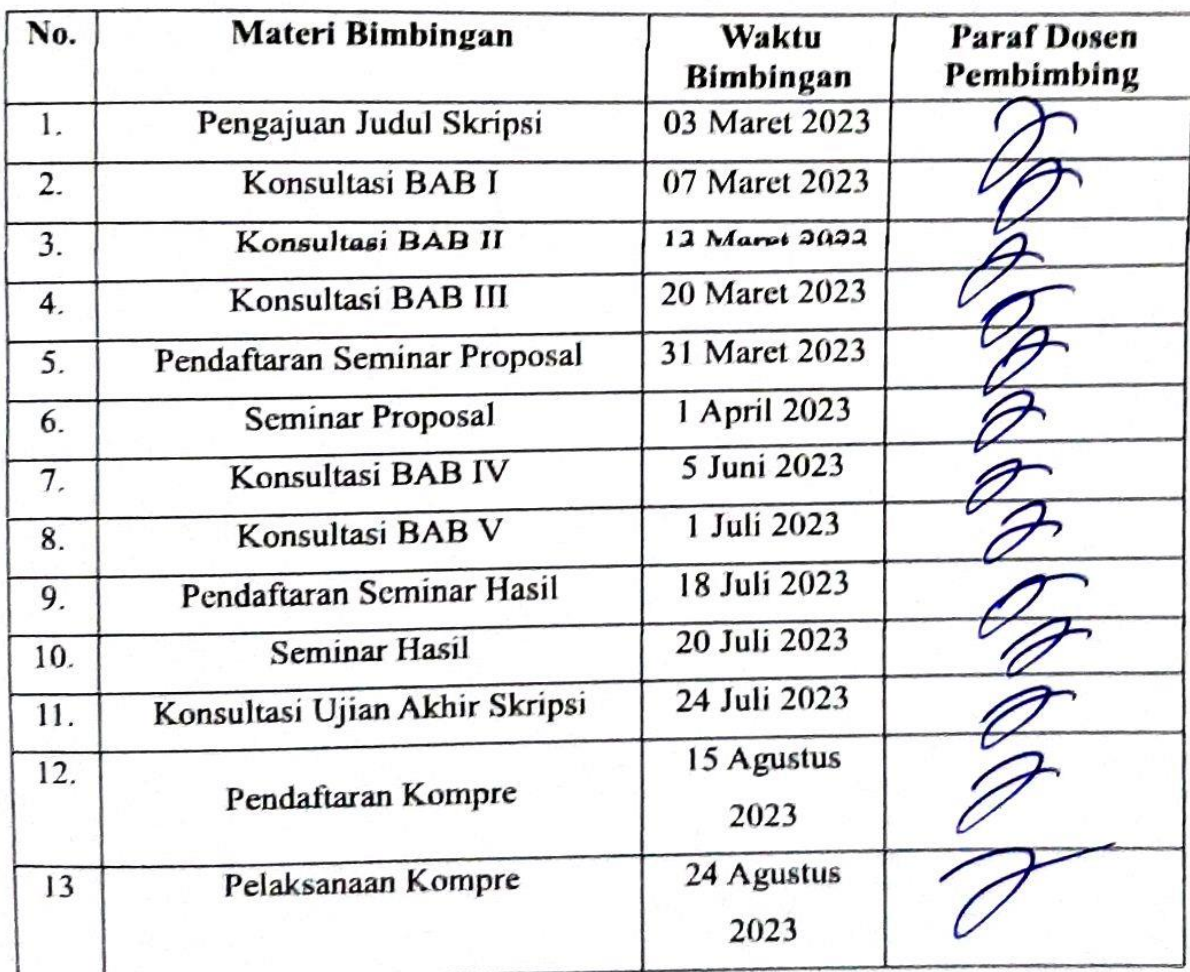 No. Materi Bimbingan Waktu Bimbingan Paraf Dosen Pembimbing
1. Pengajuan Judul Skripsi 03 Maret 2023
2. Konsultasi BAB I 07 Maret 2023
3. Konsultasi BAB II
4. Konsultasi BAB III 20 Maret 2023
5. Pendaftaran Seminar Proposal 31 Maret 2023
6. Seminar Proposal 1 April 2023
7. Konsultasi BAB IV 5 Juni 2023
8. Konsultasi BAB V 1 Juli 2023
9. Pendaftaran Seminar Hasil 18 Juli 2023
10. Seminar Hasil 20 Juli 2023
11. Konsultasi Ujian Akhir Skripsi 24 Juli 2023
12. Pendaftaran Kompre 15 Agustus
2023
13 Pelaksanaan Kompre 24 Agustus
2023